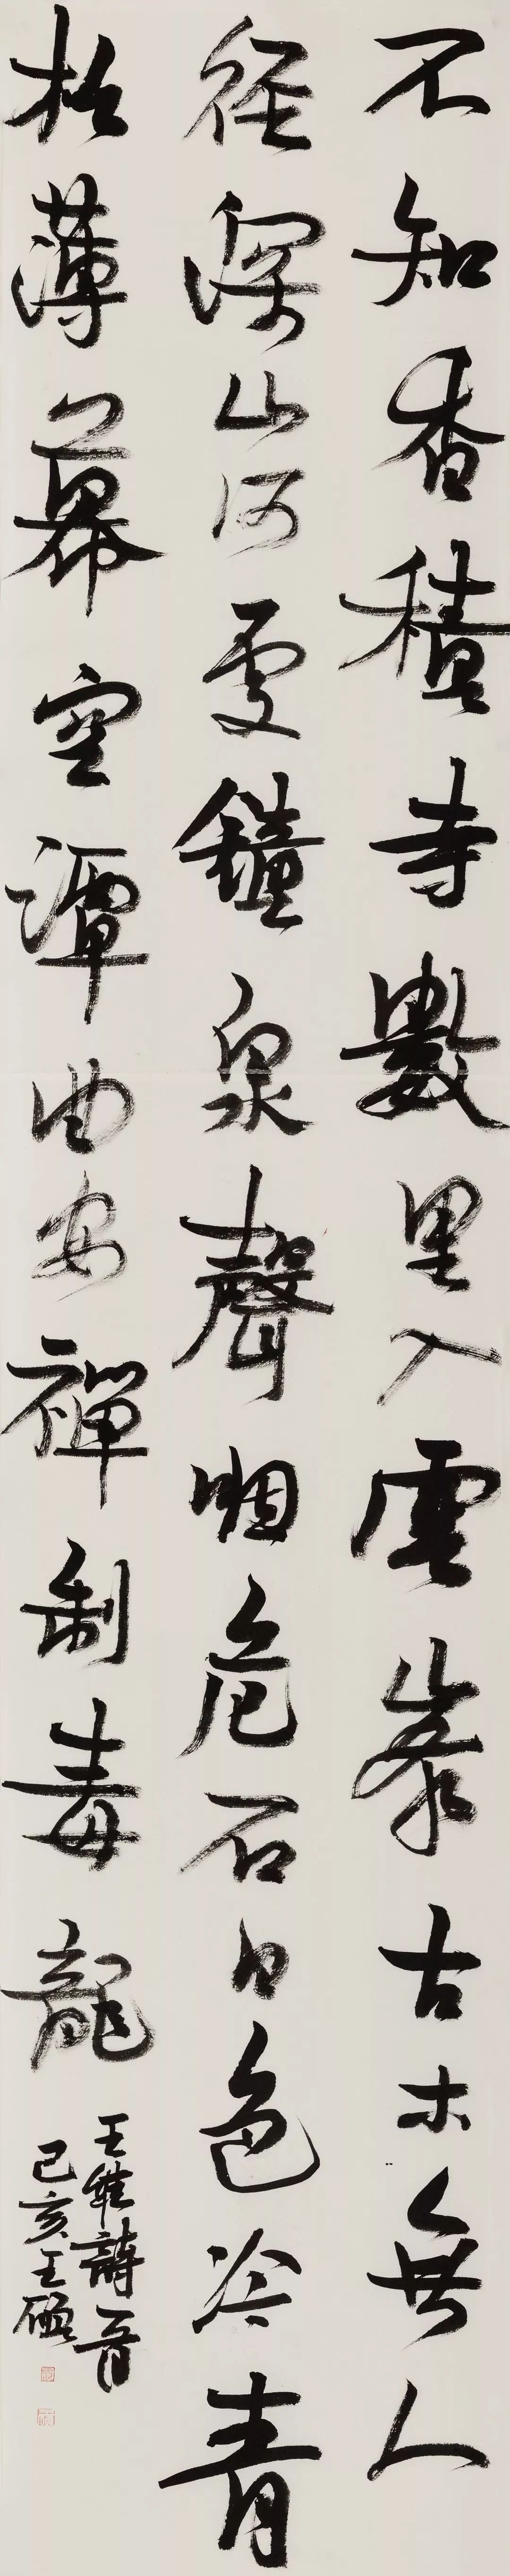 不知香積寺數里入雲峯古木無人
徑深山何處鐘泉聲咽危石日色冷青
松薄幕空潭曲安禪制毒龍
王維詩一首
己亥王